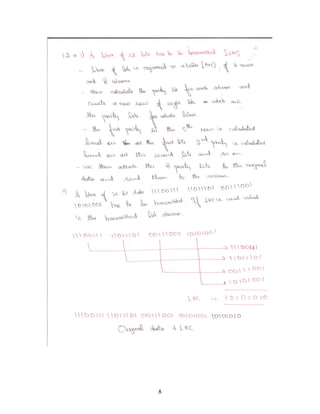 1.2 a) A block of 32 bits has to be transmitted [LRC]
- block of bits is organised in a table [LRC] of 4 rows
and 8 columns.
- then calculate the parity bit for each column and
create a new row of eight bits which are
the parity bits for whole block
- the first parity in the 5th row is calculated
based on the first bits 2nd parity is calculated
based on all the second bits and so on
- we then attach the 8 parity bits to the original
data and send them to the receiver.
A block of 32 bit data 11100111 11011101 00111001
10101001 has to be transmitted. If LRC is used what
is the transmitted bit stream.
11100111 11011101 00111001 10101001
11100111
11011101
00111001
10101001
LRC = 10101010
11100111 11011101 00111001 10101001 10101010
Original data + LRC
8